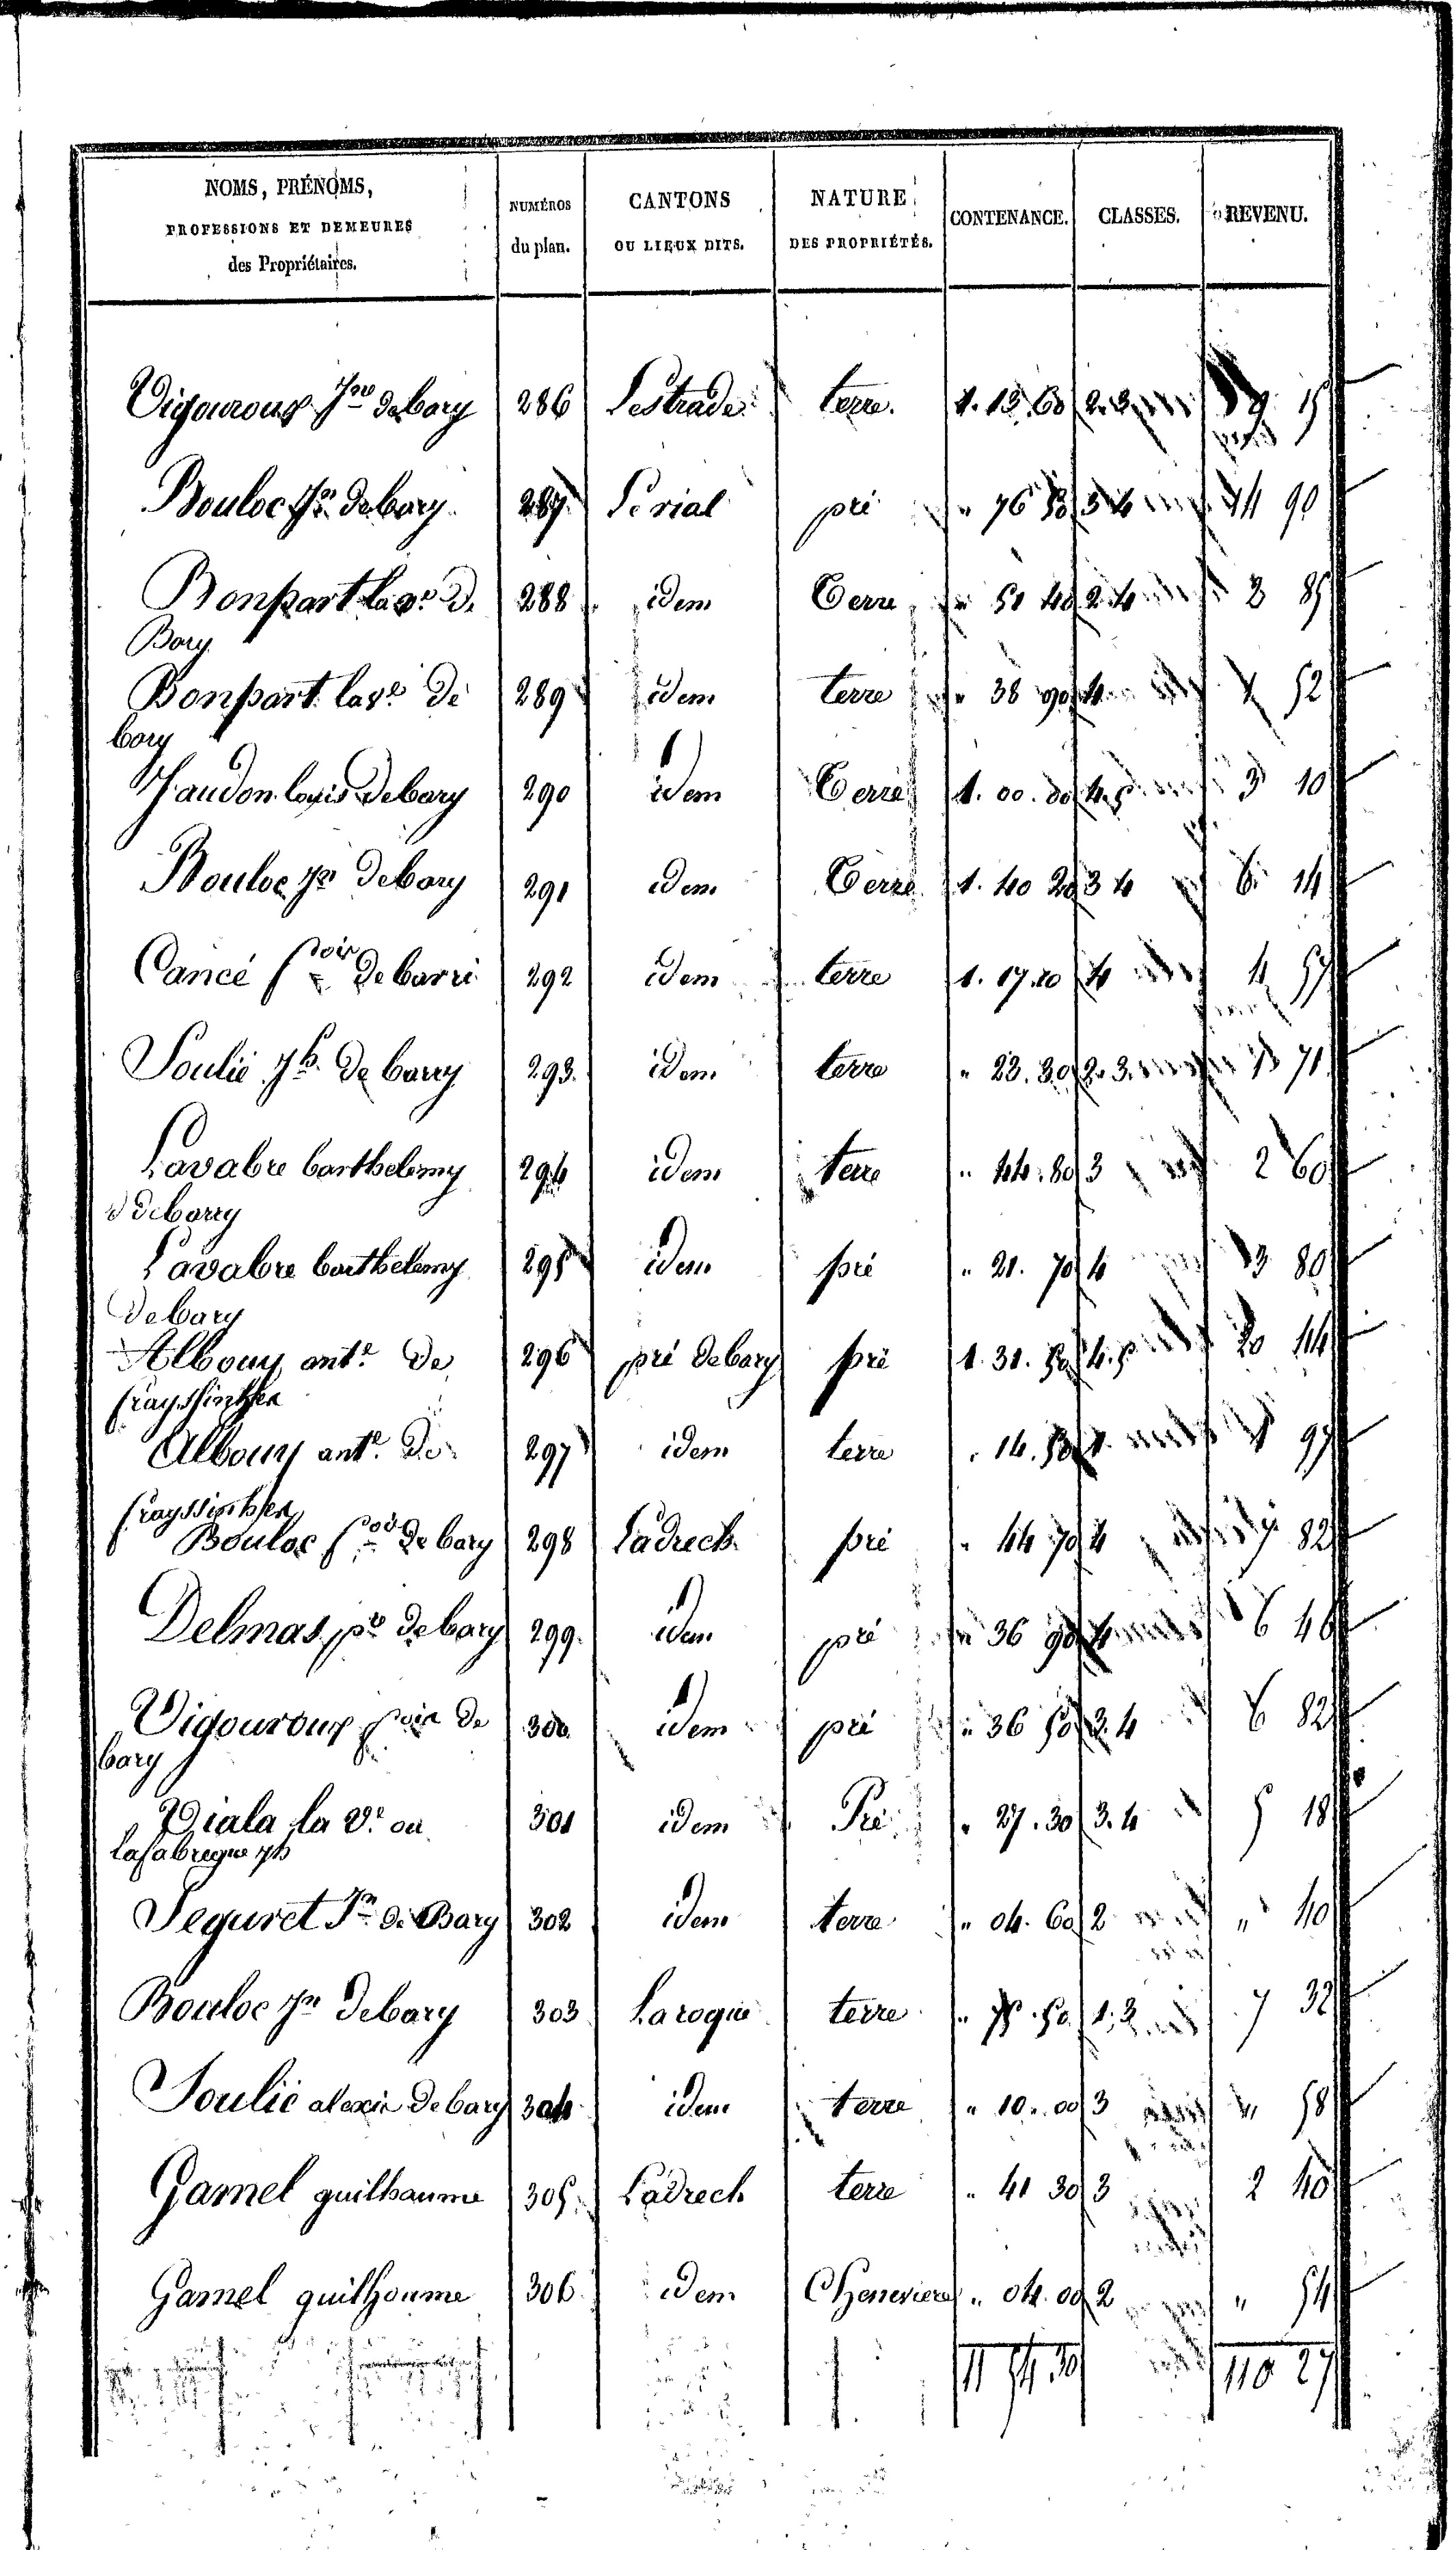 NOMS, PRÉNOMS, PROFESSIONS ET DEMEURES des Propriétaires. NUMÉROS du plan. CANTONS OU LIEUX DITS. NATURE DES PROPRIÉTÉS. CONTENANCE. CLASSES. REVENU.
Vigouroux de bary 286 Lestrade terre. 1. 13. 60 2. 3 9 15
Bouloc Jn. de bary 287 Le rial pré " 76 50 3 4 14 90
Bonpart la ve. De 288 idem Terre " 51 40 2. 4 3 85
Bary
Bonpart la ve. De 289 idem terre " 38 90 4 1 52
bary
Jaudon louis De bary 290 idem Terre 1. 00. 80 4. 5 3 10
Bouloc Jn De bary 291 idem Terre 1. 40 20 3 4 6 14
Cancé fois De barri 292 idem terre 1. 17. 20 4 4 57
Soulié Jh. De barry 293. idem terre " 23. 30 2. 3. 1 71
Lavabre barthelemy 294 idem terre " 44. 80 3 2 60
De barry
Lavabre barthelemy 295 idem pré " 21. 70 4 3 80
De bary
Albouy ante. De 296 pré de bary pré 1. 31. 50 4. 5 20 44
frayssinhes
Albouy ante. De 297 idem terre " 14. 50 1. 1 97
frayssinhes
Bouloc fois De bary 298 Ladrech pré " 44 70 4 7 82
Delmas pre De bary 299. idem pré " 36 90 4 6 46
Vigouroux fois De 300. idem pré " 36 50 3. 4 6 82
bary
Viala la ve. ou 301 idem Pré " 27. 30 3. 4 5 18
Lafabregue Jh
Seguret Jn De Bary 302 idem terre " 04. 60 2 " 40
Bouloc Jn De bary 303 Laroque terre " 75. 50. 1. 3 7 32
Soulié alexis De bary 304 idem terre " 10. 00 3 " 58
Gamel guilhaume 305. Ladrech terre " 41 30 3 2 40
Gamel guilhoume 306 idem Cheneviere " 04. 00 2 " 54
11 54 30 110 27